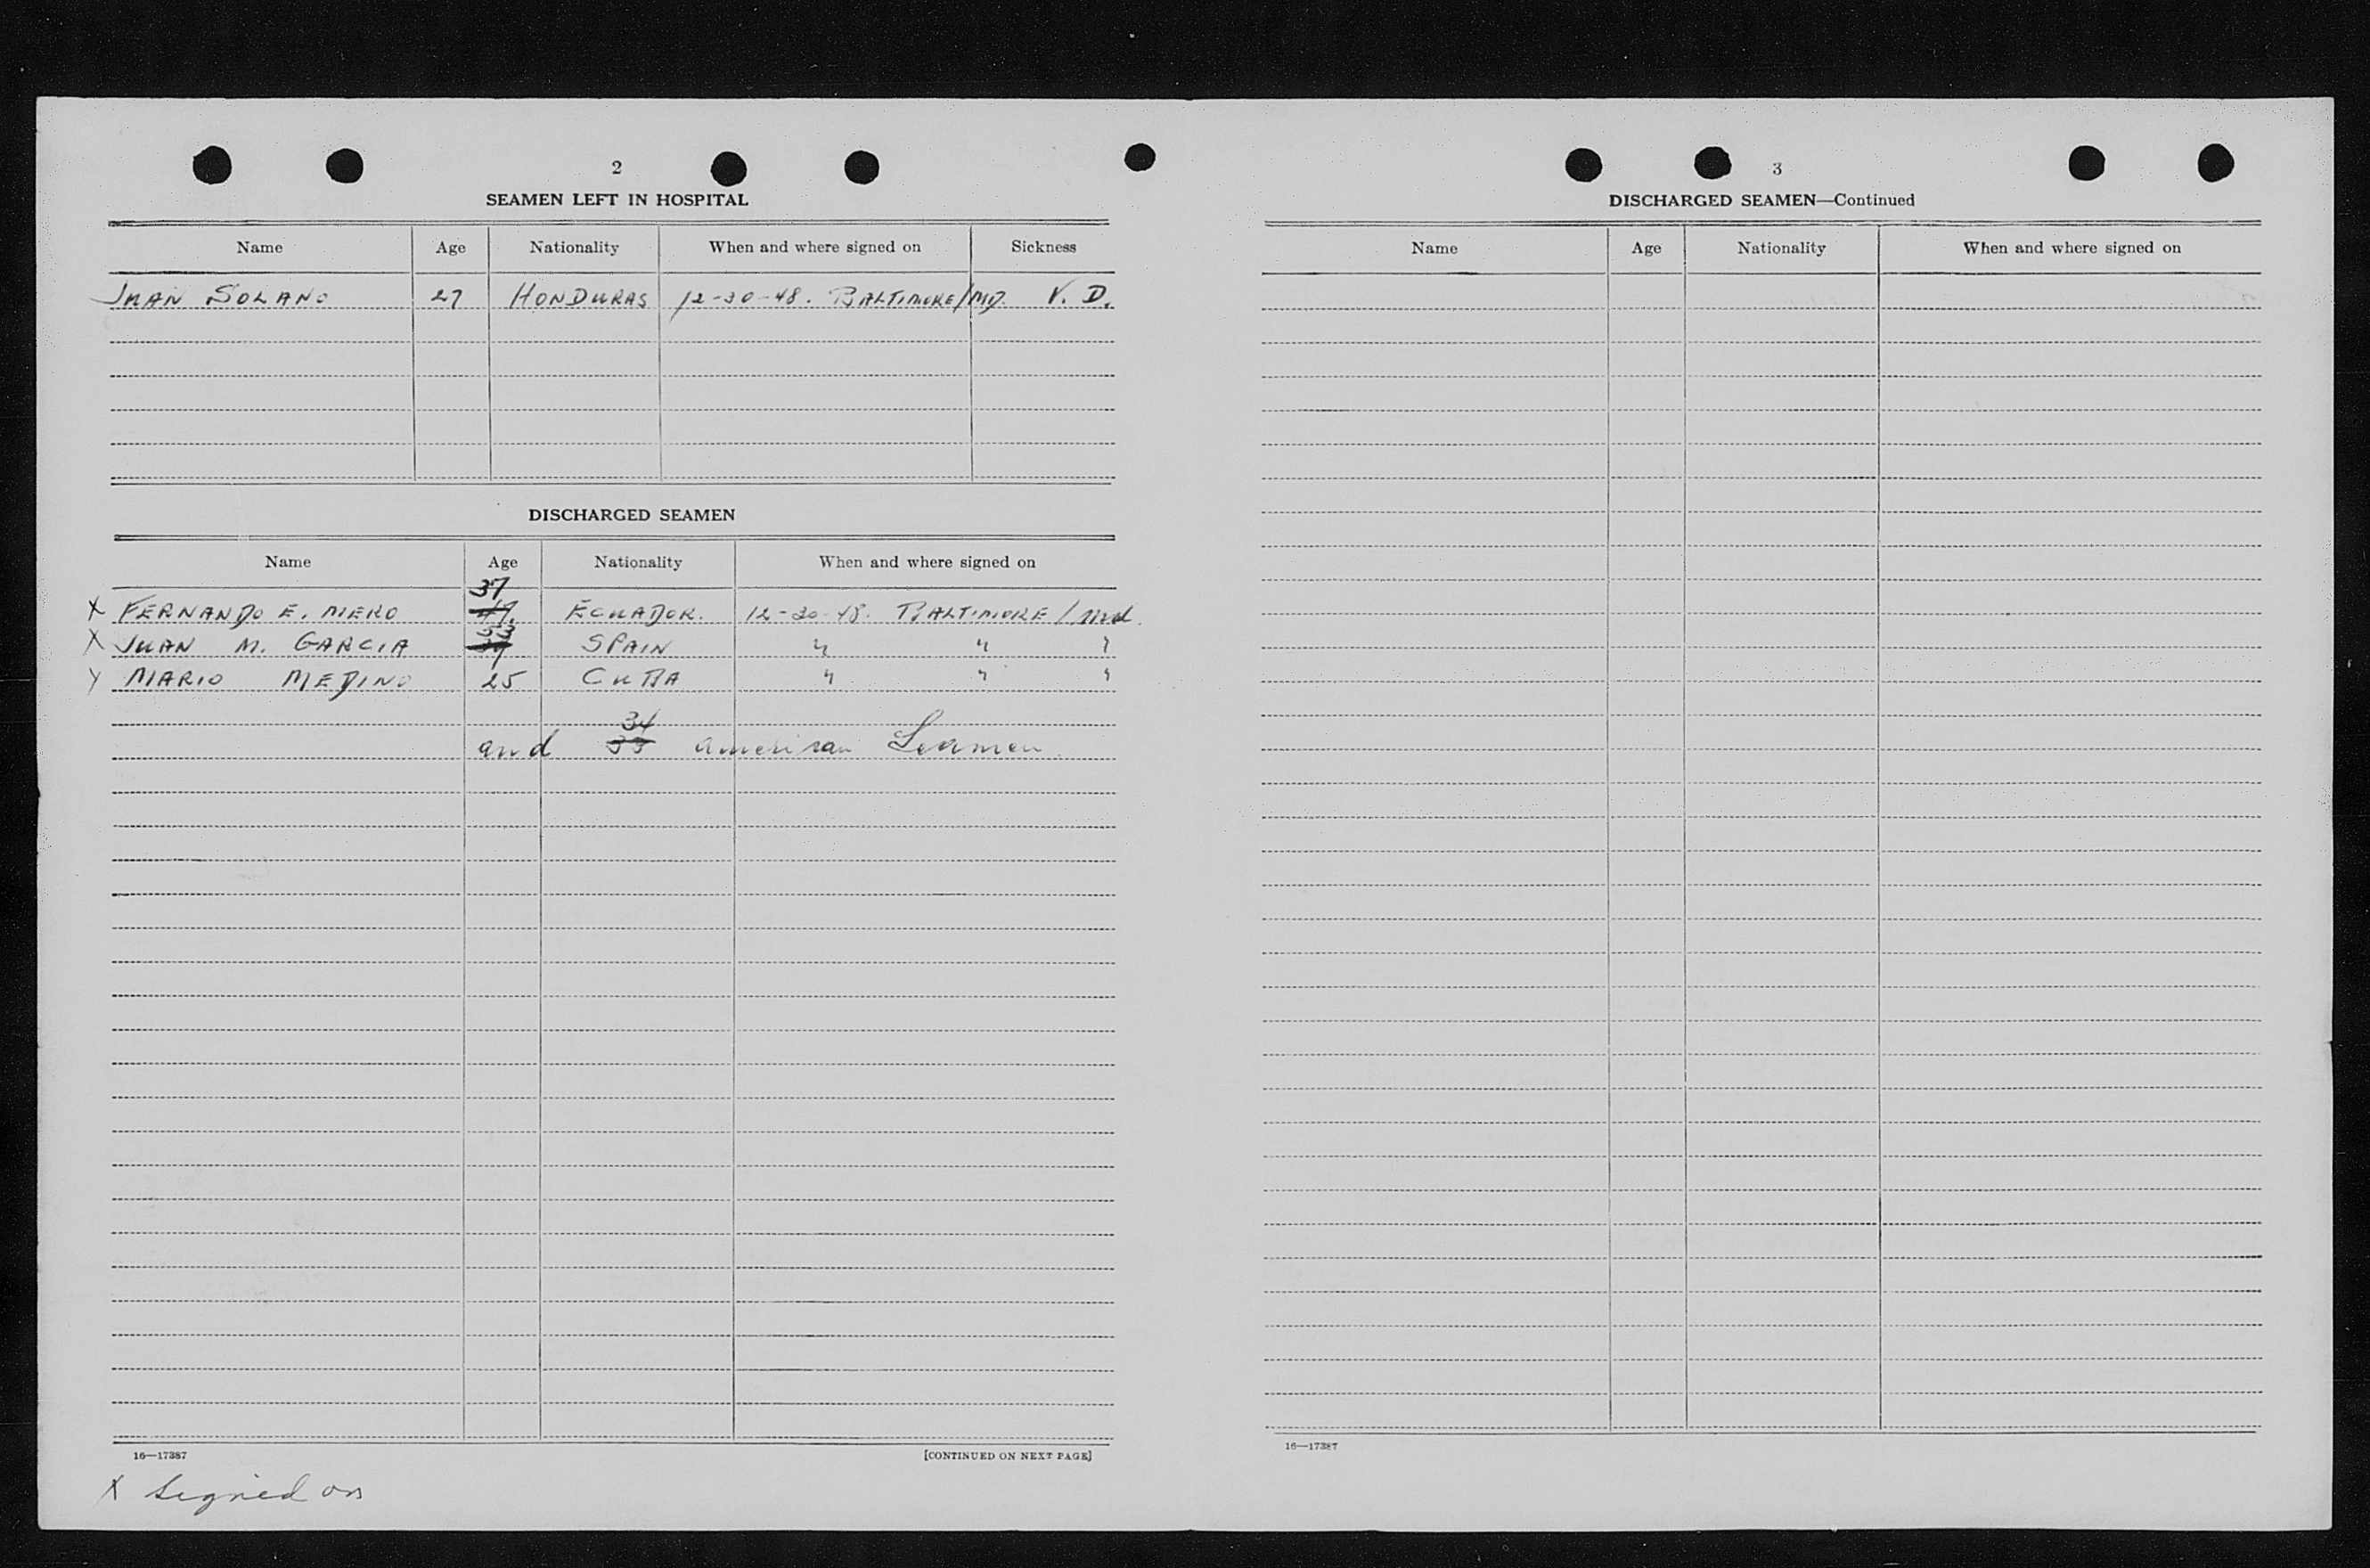 2
SEAMEN LEFT IN HOSPITAL
Name Age Nationality When and where signed on Sickness
JUAN SOLANO 27 HONDURAS 12-30-48. BALTIMORE/MD. V. D.
DISCHARGED SEAMEN
Name Age Nationality When and where signed on
37
X FERNANDO E. MERO ECUADOR. 12-30-48. BALTIMORE / Md.
X JUAN M. GARCIA SPAIN " " "
X MARIO MEDINO 25 CUBA " " "
34
and 33 american Seamen.
16—17387 [CONTINUED ON NEXT PAGE]
X signed on
3
DISCHARGED SEAMEN—Continued
Name Age Nationality When and where signed on
16—17387